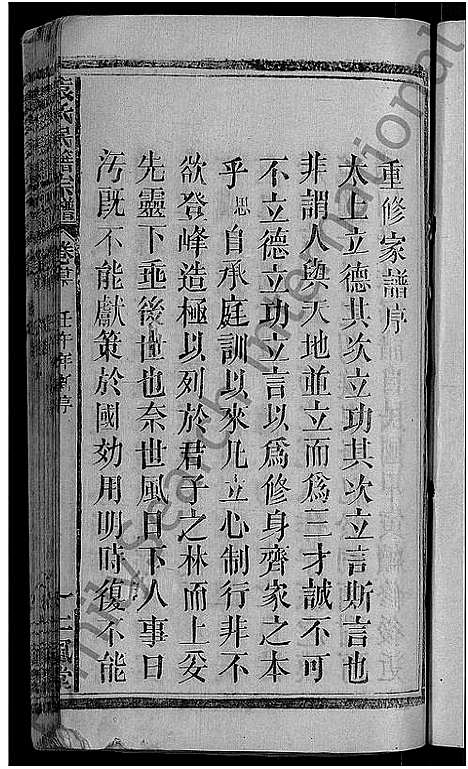 重修家譜序
太上立德其次立功其次立言斯言也
非謂人與天地並立而爲三才誠不可
不立德立功立言以爲修身齊家之本
乎思自承庭訓以來凡立心制行非不
欲登峰造極以列於君子之林而上妥
先靈下垂後世也奈世風日下人事日
汚既不能獻策於國効用明時復不能
袁氏 譜 卷 壬午年新序